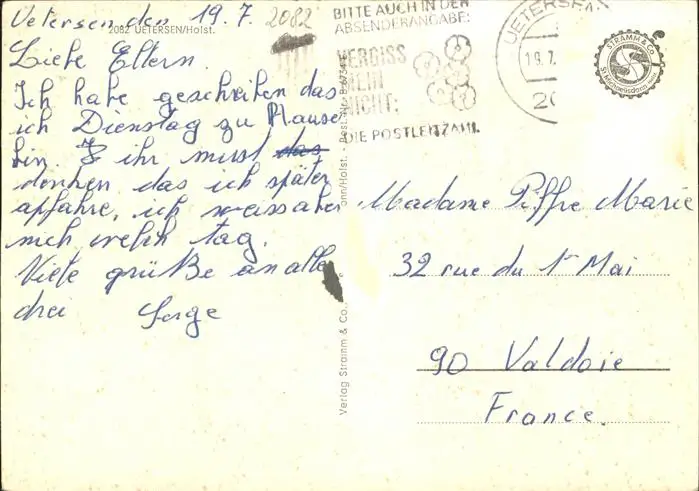 Uetersen den 19.7.
2082
2082 UETERSEN/Holst.
Liebe Eltern.
Ich habe geschreiben das
ich Dienstag zu Hause
bin. ihr must das
denken das ich später
apfahre, ich weiss aber
nich welch tag.
Viele grüße an alle
drei Serge
BITTE AUCH IN DER
ABSENDERANGABE:
VERGISS
MEIN
NICHT:
DIE POSTLEITZAHL
UETERSEN
19.7.
20
STRAMM & Co.
St. Michaelisdonn
Verlag Stramm & Co.
onn/Holst. - Best.-Nr. B
Madame Piffre Marie
32 rue du 1er Mai
90 Valdoie
France.